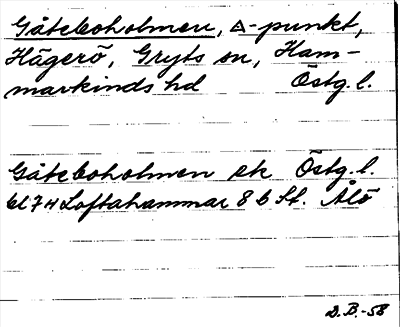 Gåteboholmen, △-punkt,
Hägerö, Gryts sn, Ham-
markinds hd Östg. l.
Gåteboholmen ek Östg. l.
bl 74 Loftahammar 8 b St. Ålö
D.B.-58